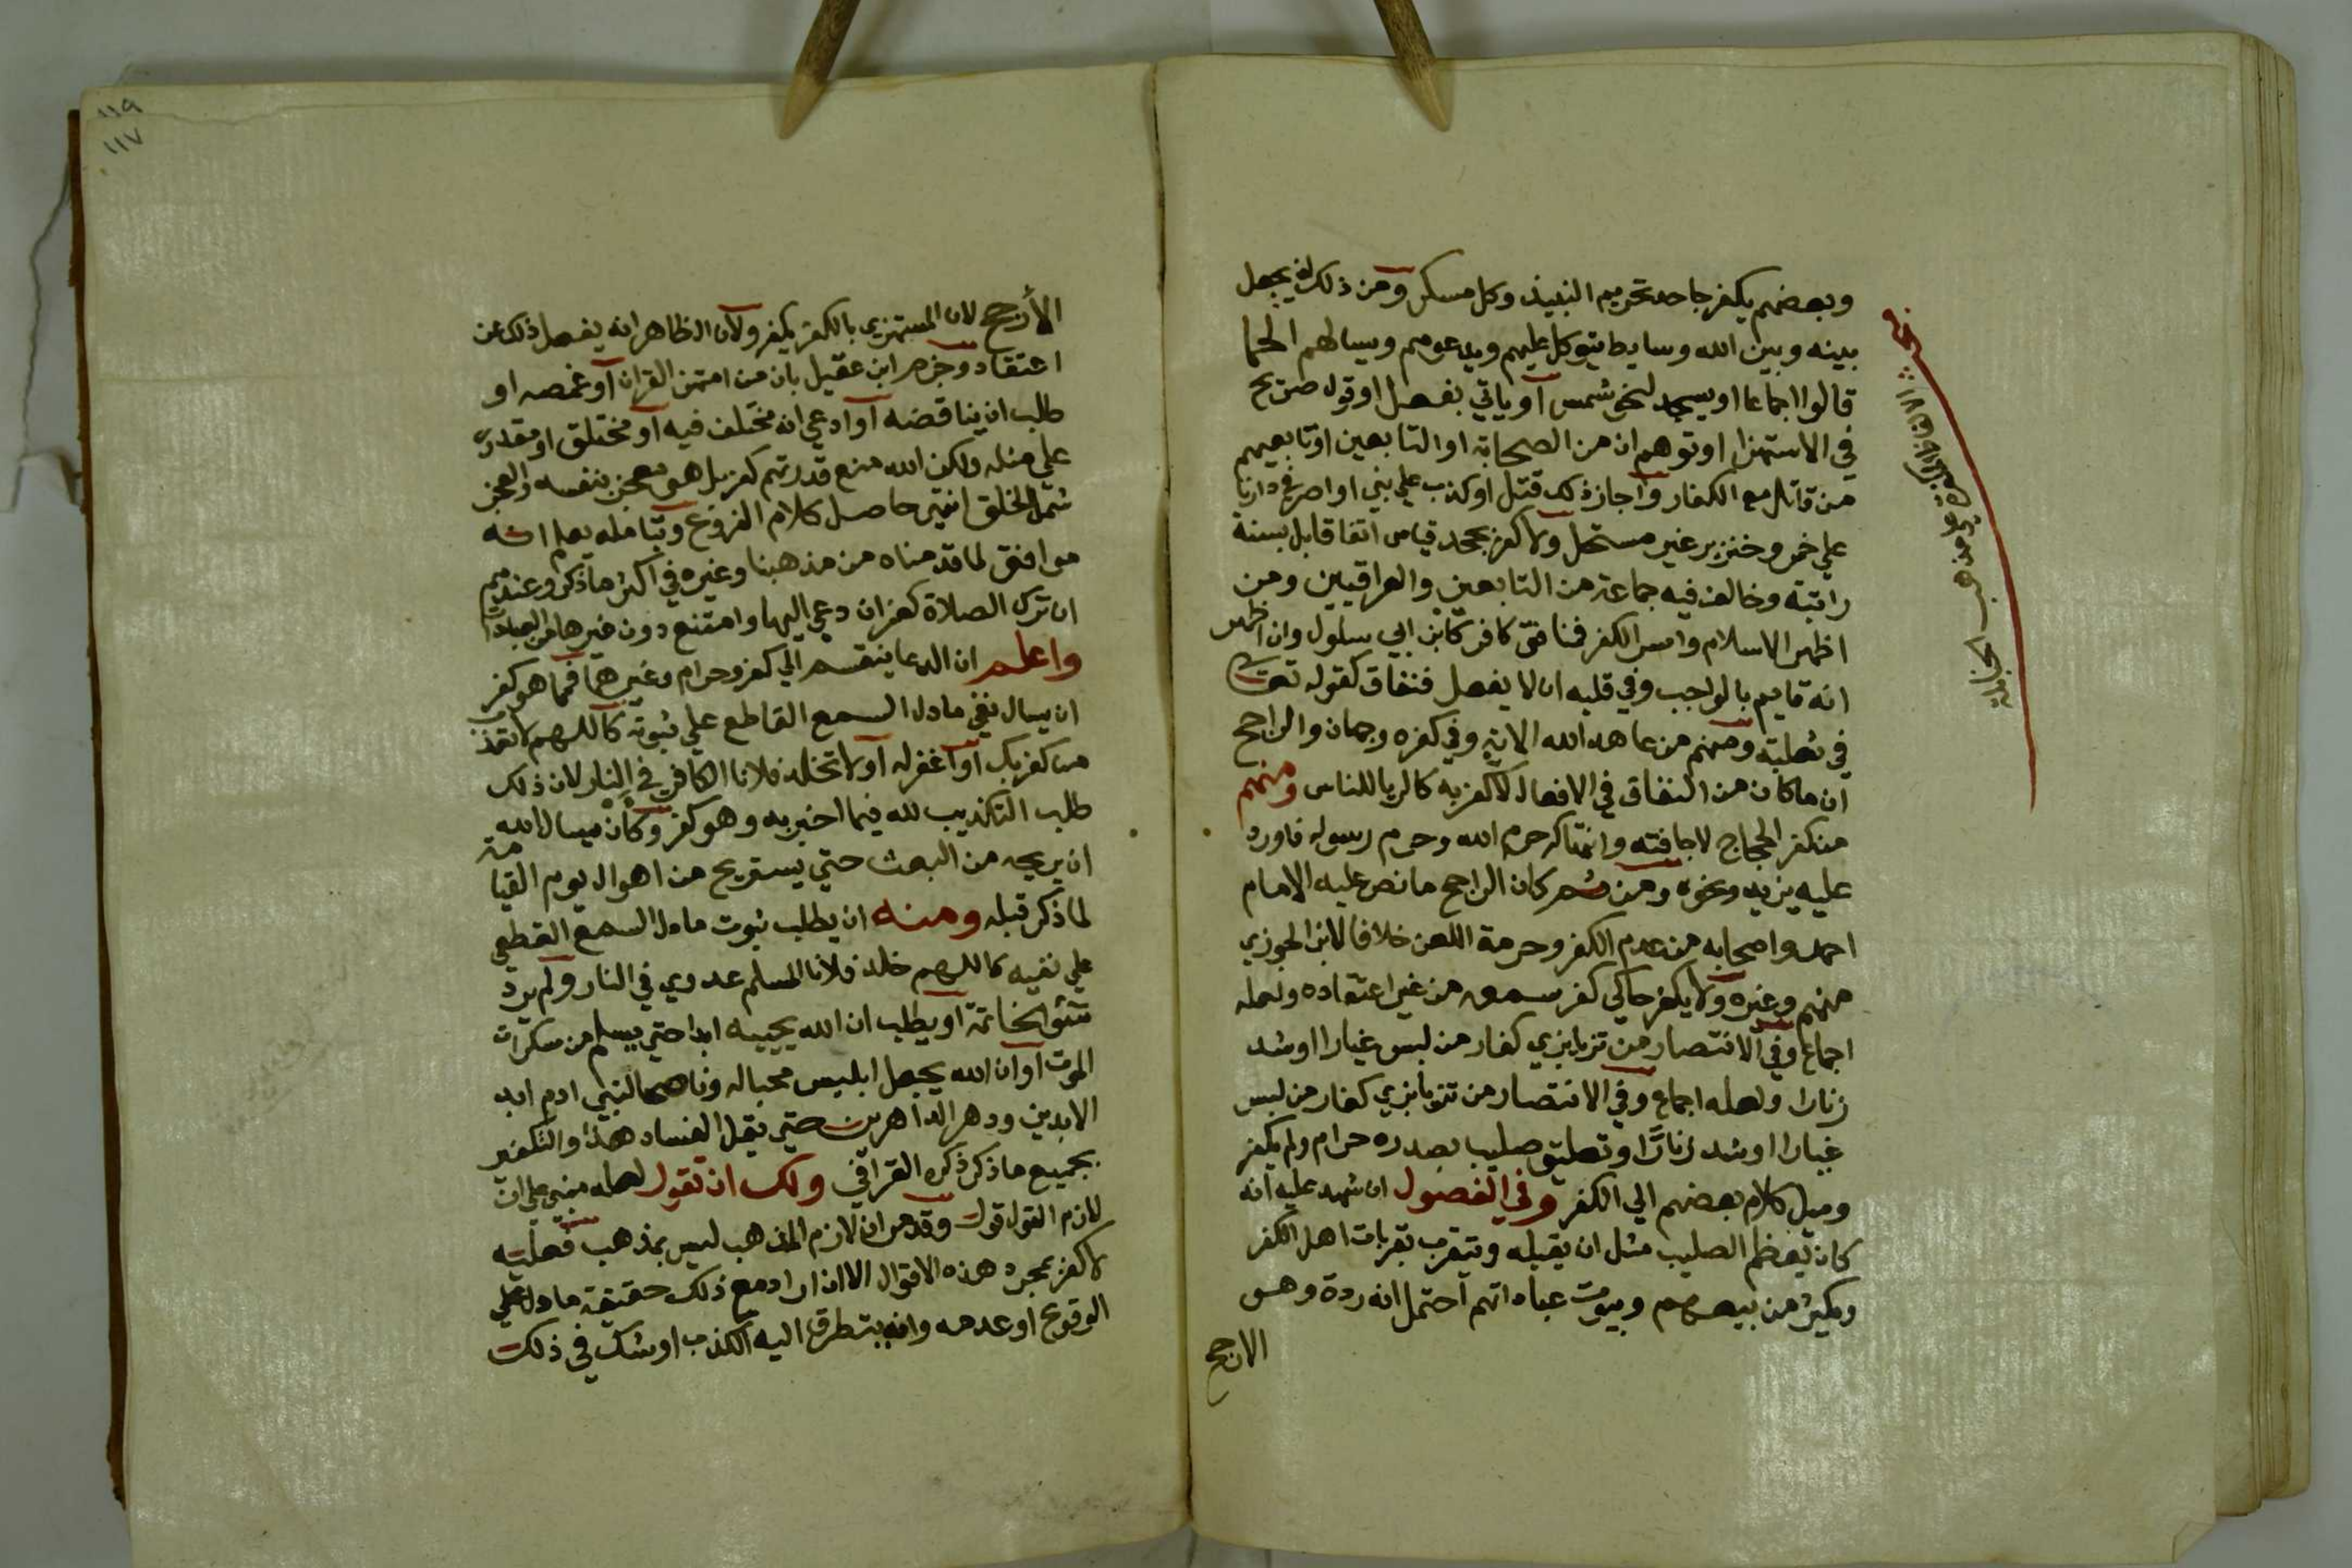 وبعضهم يكفر جاحد تحريم النبيذ وكل مسكر ومن ذلك ان يجعل
بينه وبين الله وسايط يتوكل عليهم ويدعوهم ويسالهم
قالوا اجماعا او يسجد لنحو شمس او ياتي بفعل او قول صريح
في الاستهزا او توهم ان من الصحابة او التابعين او تابعيهم
من قاتل مع الكفار واجاز ذلك قتل او كذب علي نبي او اصر في دارنا
علي خمر وخنزير غير مستحل ولا كفر بجحد قياس اتفاقا بل بسنة
راتبة وخالف فيه جماعة من التابعين والعراقيين ومن
اظهر الاسلام واسر الكفر فمنافق كافر كابن ابي سلول وان اظهر
انه قايم بالواجب وفي قلبه ان لا يفعل فنفاق كقوله تعالى
في ثعلبة ومنهم من عاهد الله الاية وفي كفره وجهان والراجح
ان ما كان من النفاق في الافعال لا كفر به كالريا للناس ومنهم
من كفر الحجاج لاخافته وانتهاك حرم الله وحرم رسوله فاورد
عليه يزيد ونحوه ومن ثم كان الراجح ما نص عليه الامام
احمد واصحابه من عدم الكفر وحرمة اللعن خلافا لابن الجوزي
منهم وغيره ولا يكفر حاكي كفر سمعه من غير اعتقاده ولعله
اجماع وفي الانتصار من تزيا بزي كفار من لبس غيارا او شد
زنارا ولعله اجماع وفي الانتصار من تزيا بزي كفار من لبس
غيارا او شد زنارا وتعليق صليب بصدره حرام ولم يكفر
وميل كلام بعضهم الي الكفر وفي الفصول ان شهد عليه انه
كان يعظم الصليب مثل ان يقبله ويتقرب بقربات اهل الكفر
ويكثر من بيعهم وبيوت عباداتهم احتمل انه ردة وهو
الارجح
علي مذهب الحنابلة
١١٩
١١٧
الأرجح لان المستهزي بالكفر يكفر ولان الظاهر انه يفعل ذلك عن
اعتقاد وجزم ابن عقيل بان من امتهن القران او غمصه او
طلب ان يناقضه او ادعي انه مختلف فيه او مختلق او مقدور
علي مثله ولكن الله منع قدرتهم كفر بل هو معجز بنفسه والعجز
شمل الخلق انتهي حاصل كلام الفروع وبتامله يعلم انه
موافق لما قدمناه من مذهبنا وغيره في اكثر ما ذكر وعندهم
ان ترك الصلاة كفر ان دعي اليها وامتنع دون غيرها من العبادات
واعلم ان الدعا ينقسم الي كفر وحرام وغيرهما فما هو كفر
ان يسال نفي ما دل السمع القاطع علي ثبوته كاللهم لا تعذب
من كفر بك او اغفر له او لا تخلد فلانا الكافر في النار لان ذلك
طلب التكذيب لله فيما اخبر به وهو كفر وكأن يسال الله
ان يريحه من البعث حتي يستريح من اهوال يوم القيامة
لما ذكر قبله ومنه ان يطلب ثبوت ما دل السمع القطعي
علي نفيه كاللهم خلد فلانا المسلم عدوي في النار ولم يرد
سوء الخاتمة او يطلب ان الله يحييه ابدا حتي يسلم من سكرات
الموت او ان الله يجعل ابليس محبا له وناصحا لبني ادم ابد
الابدين ودهر الداهرين حتي يقل الفساد هذا والتكفير
بجميع ما ذكر ذكره القرافي ولك ان تقول لعله مبني علي ان
لازم القول قول وقد مر ان لازم المذهب ليس بمذهب فعليه
لا كفر بمجرد هذه الاقوال الا ان اراد مع ذلك حقيقة ما دل علي
الوقوع او عدمه وانه يتطرق اليه الكذب او شك في ذلك